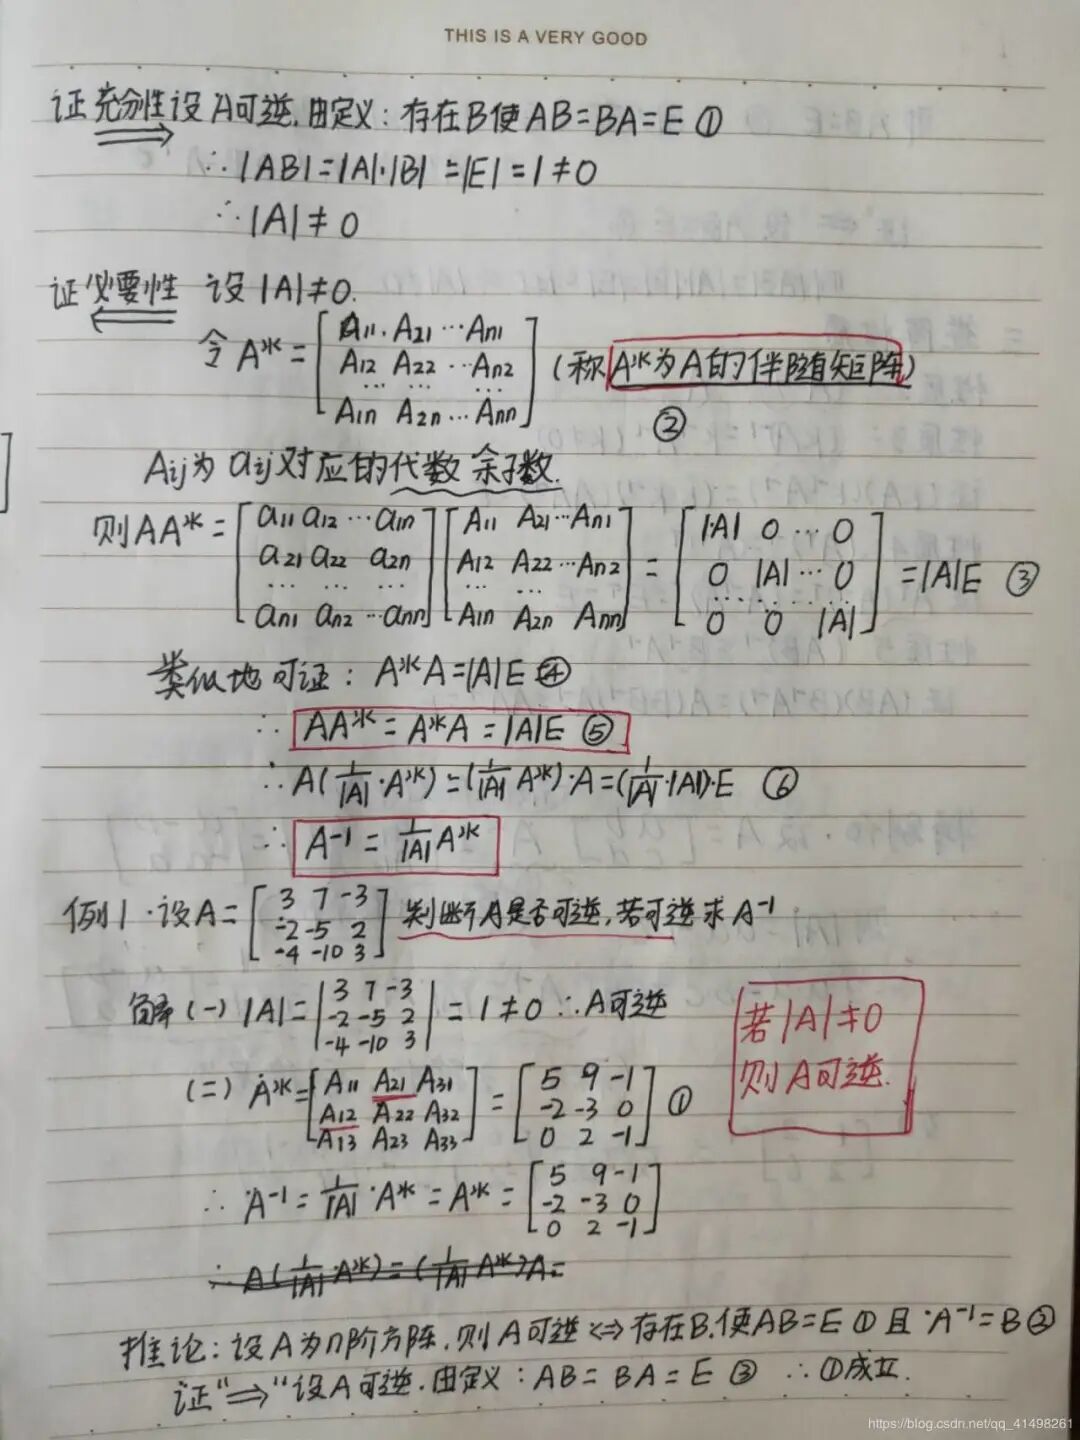 THIS IS A VERY GOOD
证充分性设A可逆.由定义:存在B使AB=BA=E ①
∴|AB|=|A|·|B|=|E|=1≠0
∴|A|≠0
证必要性 设|A|≠0.
令A*=[A11 A21 ⋯ An1
A12 A22 ⋯ An2
⋯ ⋯ ⋯
A1n A2n ⋯ Ann] (称A*为A的伴随矩阵)
②
Aij为aij对应的代数余子数.
则AA*=[a11 a12 ⋯ a1n
a21 a22 a2n
⋯ ⋯ ⋯
an1 an2 ⋯ ann][A11 A21 ⋯ An1
A12 A22 ⋯ An2
⋯ ⋯
A1n A2n Ann]=[|A| 0 ⋯ 0
0 |A| ⋯ 0
⋯⋯⋯
0 0 |A|]=|A|E ③
类似地可证:A*A=|A|E ④
∴ AA*=A*A=|A|E ⑤
∴A(1/|A|·A*)=(1/|A| A*)·A=(1/|A|·|A|)·E ⑥
∴ A⁻¹=1/|A| A*
例1.设A=[3 7 -3
-2 -5 2
-4 -10 3] 判断A是否可逆,若可逆求A⁻¹
解(一)|A|=|3 7 -3
-2 -5 2
-4 -10 3|=1≠0 ∴A可逆
若|A|≠0
则A可逆.
(二)A*=[A11 A21 A31
A12 A22 A32
A13 A23 A33]=[5 9 -1
-2 -3 0
0 2 -1] ①
∴A⁻¹=1/|A|·A*=A*=[5 9 -1
-2 -3 0
0 2 -1]
∴A(1/|A|·A*)=(1/|A| A*)A=
推论:设A为n阶方阵.则A可逆<=>存在B.使AB=E ①且A⁻¹=B ②
证"=>"设A可逆.由定义:AB=BA=E ③ ∴①成立.
https://blog.csdn.net/qq_41498261